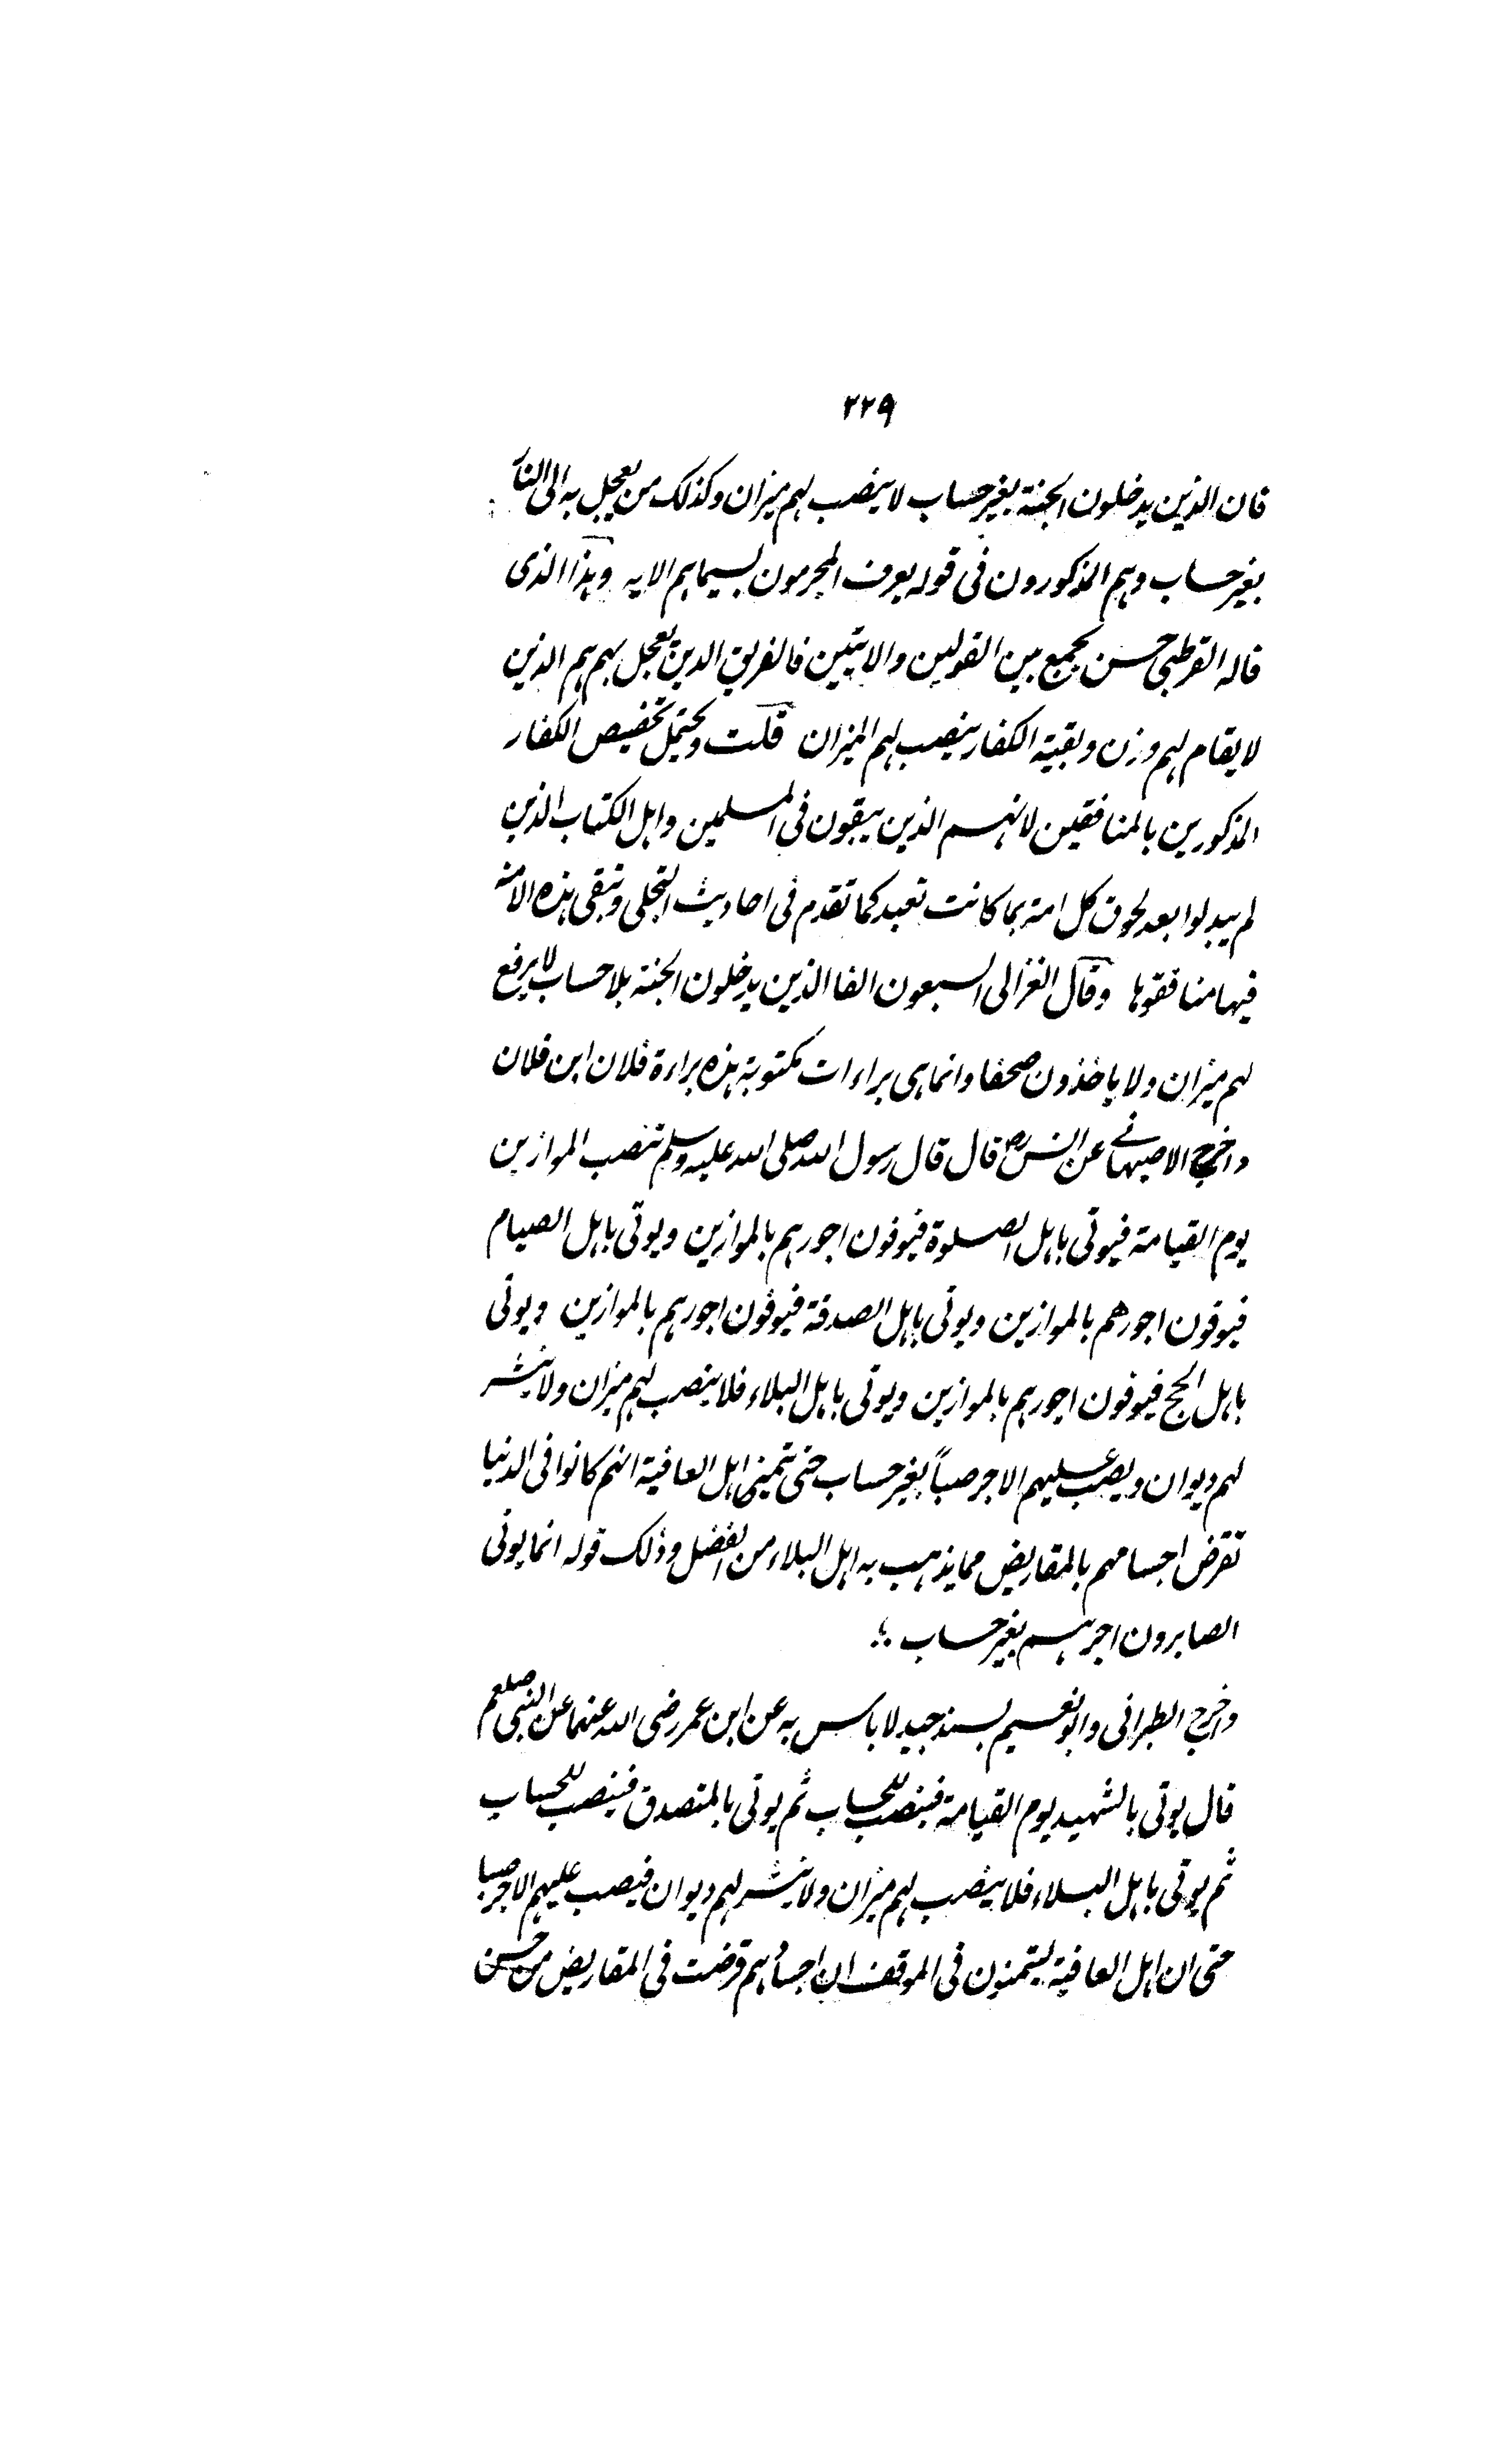 ۲۲۹
فان الذین یدخلون الجنة بغیر حساب لا ینصب لہم میزان وکذلک من یعجل بہ الی النار
بغیر حساب وہم المذکورون فی قولہ یعرف المجرمون بسیماہم الایہ وہذا الذی
قالہ القرطبی حسن یجمع بین القولین والایتین فالفریق الذین یعجل بہم ہم الذین
لا یقام لہم وزن وبقیة الکفار ینصب لہم المیزان قلت ویحتمل تخصیص الکفار
المذکورین بالمنافقین لانہم الذین یبقون فی المسلمین واہل الکتاب الذین
لم یبدلوا بعد لحوق کل امة بما کانت تعبد کما تقدم فی احادیث التجلی وتبقی ہذہ الامة
فیہا منافقوہا وقال الغزالی السبعون الفا الذین یدخلون الجنة بلا حساب لا یرفع
لہم میزان ولا یاخذون صحفا وانما ہی براءات مکتوبة ہذہ براءة فلان ابن فلان
واخرج الاصبہانی عن انس رض قال قال رسول اللہ صلی اللہ علیہ وسلم تنصب الموازین
یوم القیامة فیوتی باہل الصلوة فیوفون اجورہم بالموازین ویوتی باہل الصیام
فیوفون اجورهم بالموازین ویوتی باہل الصدقة فیوفون اجورہم بالموازین ویوتی
باہل الحج فیوفون اجورہم بالموازین ویوتی باہل البلاء فلا ینصب لہم میزان ولا ینشر
لہم دیوان ویصب علیہم الاجر صباً بغیر حساب حتی یتمنی اہل العافیة انہم کانوا فی الدنیا
تقرض اجسامہم بالمقاریض مما یذہب بہ اہل البلاء من الفضل وذلک قولہ انما یوتی
الصابرون اجرہم بغیر حساب ؛
واخرج الطبرانی وابو نعیم بسند جید لا باس بہ عن ابن عمر رضی اللہ عنہما عن النبی صلعم
قال یوتی بالشہید یوم القیامة فینصب للحساب ثم یوتی بالمتصدق فینصب للحساب
ثم یوتی باہل البلاء فلا ینصب لہم میزان ولا ینشر لہم دیوان فیصب علیہم الاجر صبا
حتی ان اہل العافیة لیتمنون فی الموقف ان اجسادہم قرضت فی المقاریض من حسن